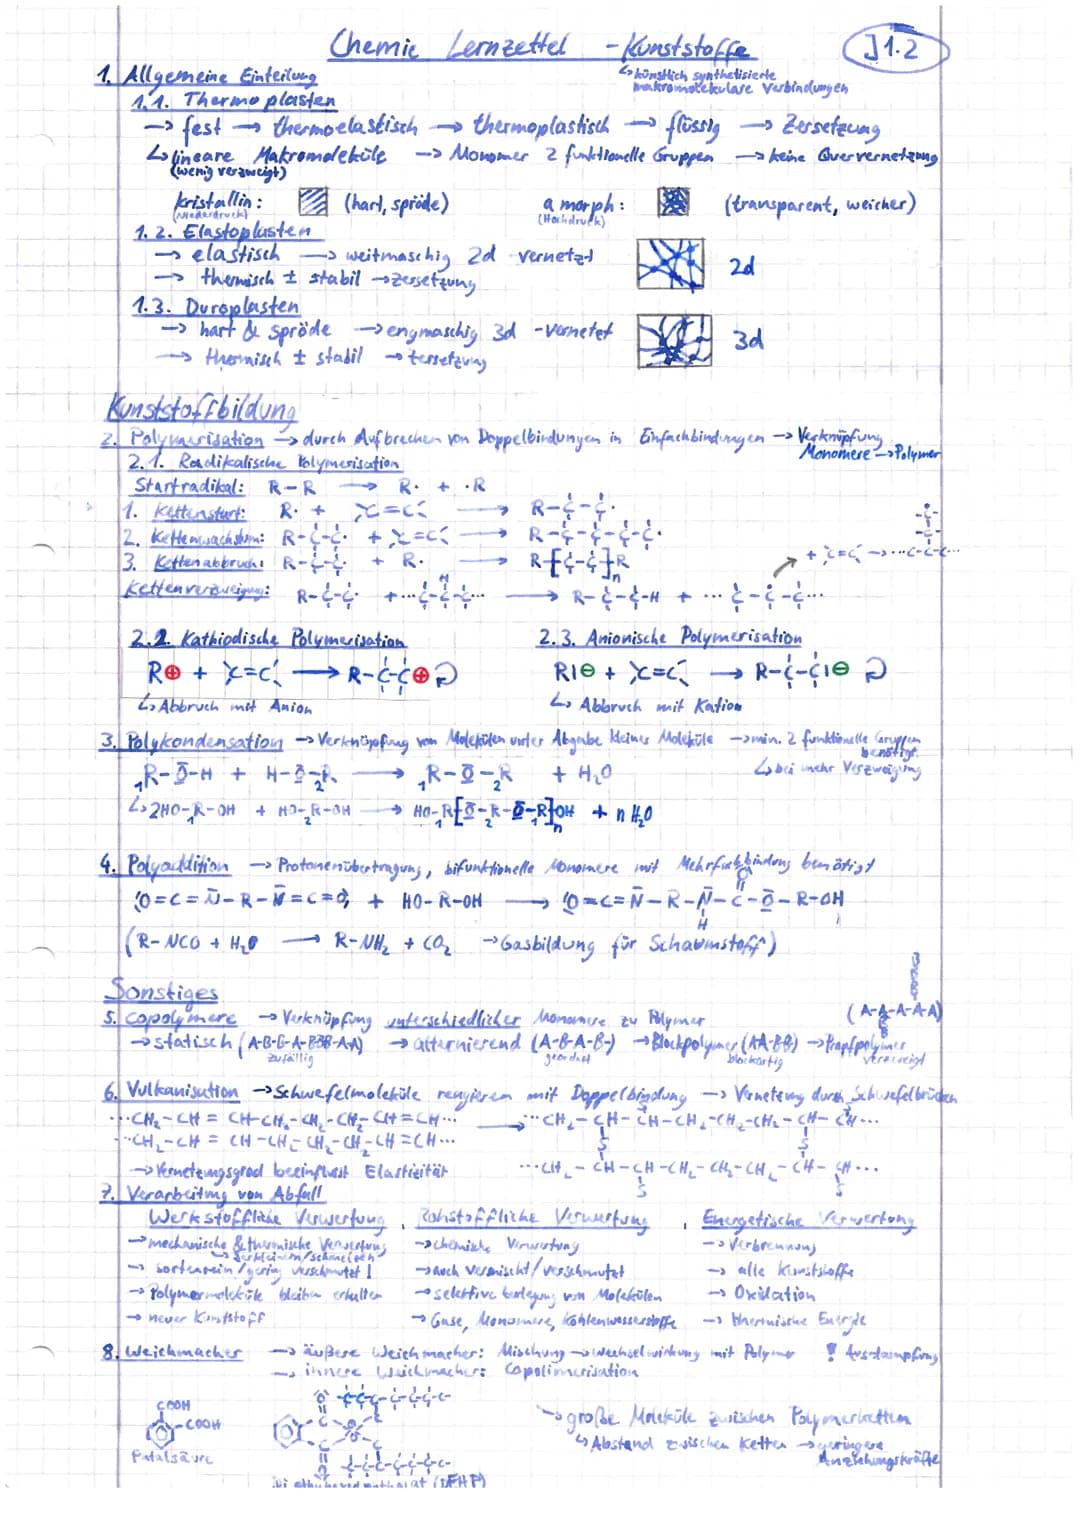 Chemie Lernzettel - Kunststoffe
J1.2
↳ künstlich synthetisierte
makromolekulare Verbindungen
1. Allgemeine Einteilung
1.1. Thermoplasten
→ fest → thermoelastisch → thermoplastisch → flüssig → Zersetzung
↳ lineare Makromoleküle → Monomer 2 funktionelle Gruppen → keine Quervernetzung
(wenig verzweigt)
kristallin: (hart, spröde) amorph: (transparent, weicher)
(Niederdruck) (Hochdruck)
1.2. Elastoplasten
→ elastisch → weitmaschig 2d vernetzt
2d
→ thermisch ± stabil → Zersetzung
1.3. Duroplasten
→ hart & spröde → engmaschig 3d - vernetzt
3d
→ thermisch ± stabil → Zersetzung
Kunststoffbildung
2. Polymerisation → durch Aufbrechen von Doppelbindungen in Einfachbindungen → Verknüpfung
Monomere → Polymer
2.1. Radikalische Polymerisation
Startradikal: R-R → R· + ·R
1. Kettenstart: R· + C=C → R-C-C·
2. Kettenwachstum: R-C-C· + C=C → R-C-C-C-C·
3. Kettenabbruch: R-C-C· + R· → R-[C-C]nR
+ C=C → ···C-C-C···
Kettenverzweigung: R-C-C· + ···C-C-C··· → R-C-C-H + ···C-C-C···
2.2. Kathiodische Polymerisation
2.3. Anionische Polymerisation
R⊕ + C=C → R-C-C⊕
R|⊖ + C=C → R-C-C|⊖
↳ Abbruch mit Anion
↳ Abbruch mit Kation
3. Polykondensation → Verknüpfung von Molekülen unter Abgabe kleiner Moleküle → min. 2 funktionelle Gruppen
benötigt
↳ bei mehr Verzweigung
₁R-O-H + H-O-₂R → ₁R-O-₂R + H₂O
↳ 2HO-R-OH + HO-R-OH → HO-R[O-R-O-R]nOH + n H₂O
4. Polyaddition → Protonenübertragung, bifunktionelle Monomere mit Mehrfachbindung benötigt
O=C=N-R-N=C=O + HO-R-OH → O=C=N-R-N-C-O-R-OH
O
H
(R-NCO + H₂O → R-NH₂ + CO₂ → Gasbildung für Schaumstoff)
Sonstiges
5. Copolymere → Verknüpfung unterschiedlicher Monomere zu Polymer
(A-A-A-A-A)
→ statisch (A-B-B-A-BBB-AA) → alternierend (A-B-A-B-) → Blockpolymer (AA-BB) → Propfpolymer
zufällig geordnet blockartig verzweigt
6. Vulkanisation → Schwefelmoleküle reagieren mit Doppelbindung → Vernetzung durch Schwefelbrücken
···CH₂-CH=CH-CH₂-CH₂-CH=CH··· → ···CH₂-CH-CH-CH₂-CH₂-CH-CH···
···CH₂-CH=CH-CH₂-CH₂-CH=CH···
S S
→ Vernetzungsgrad beeinflusst Elastizität
···CH₂-CH-CH-CH₂-CH₂-CH₂-CH-CH···
S S
7. Verarbeitung von Abfall
Werkstoffliche Verwertung, Rohstoffliche Verwertung, Energetische Verwertung
→ mechanische & thermische Verwertung → chemische Verwertung → Verbrennung
↳ zerkleinern/schmelzen
→ sortenrein/gering verschmutzt! → auch vermischt/verschmutzt → alle Kunststoffe
→ Polymermoleküle bleiben erhalten → selektive Zerlegung von Molekülen → Oxidation
→ neuer Kunststoff → Gase, Monomere, Kohlenwasserstoffe → thermische Energie
8. Weichmacher → äußere Weichmacher: Mischung → wechselwirkung mit Polymer ! Ausdampfung
→ innere Weichmacher: Copolimerisation
COOH
-COOH
Pthalsäure
→ große Moleküle zwischen Polymerketten
↳ Abstand zwischen Ketten → geringere
Anziehungskräfte
(DEHP)